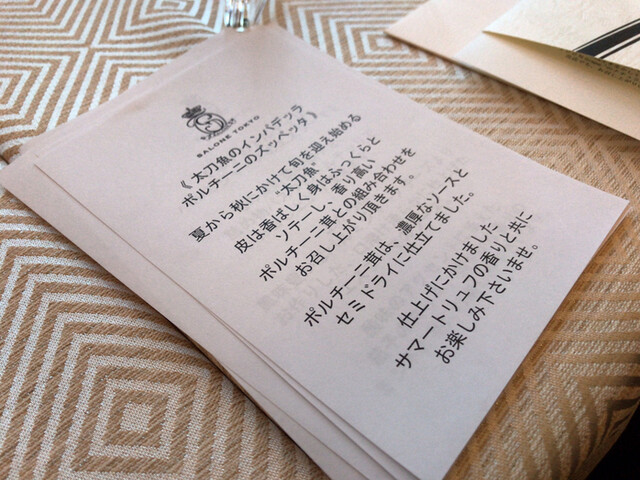 SALONE TOKYO
《 太刀魚のインパデッラ
ポルチーニのズッペッタ 》
夏から秋にかけて旬を迎え始める
"太刀魚"。
皮は香ばしく身はふっくらと
ソテーし、香り高い
ポルチーニ茸との組み合わせを
お召し上がり頂きます。
ポルチーニ茸は、濃厚なソースと
セミドライに仕立てました。
仕上げにかけました
サマートリュフの香りと共に
お楽しみ下さいませ。